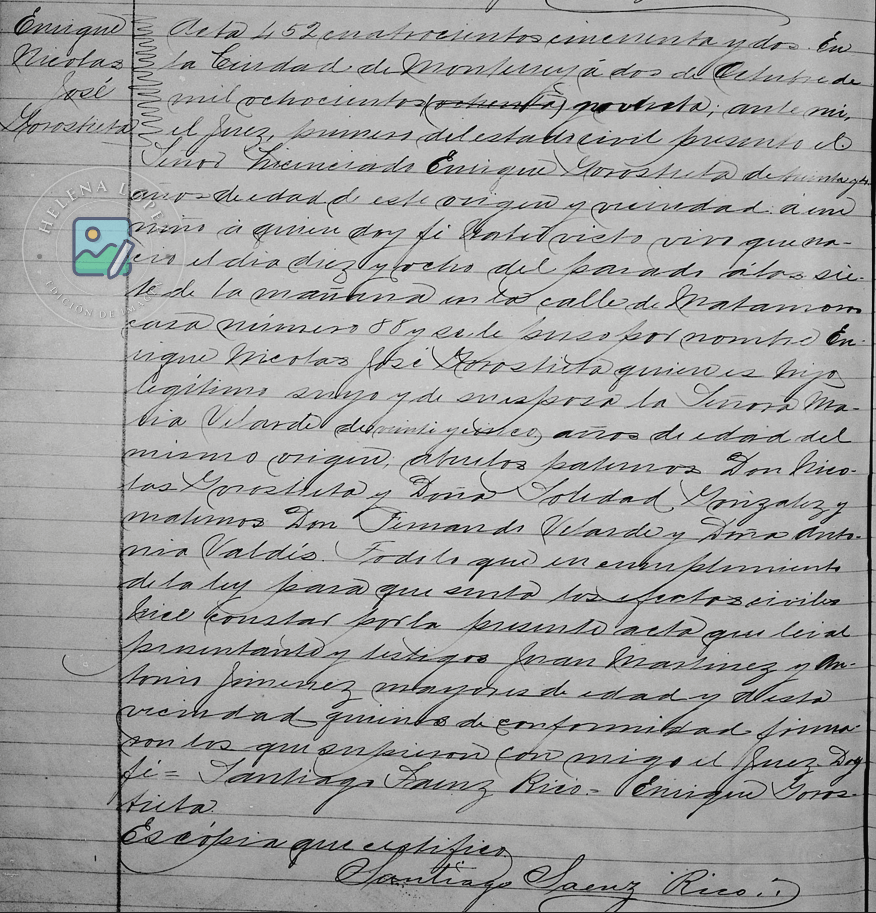 Enrique
Nicolas
José
Gorostieta
Acta 452 cuatrocientos cincuenta y dos. En
la Ciudad de Monterrey á dos de Octubre de
mil ochocientos (ochenta) noventa; ante mi,
el Juez, primero del estado civil presentó el
Señor Licenciado Enrique Gorostieta de treinta y
años de edad de este origen y vecindad á un
niño á quien doy fé haber visto vivo que na-
ció el dia diez y ocho del pasado á las sie-
te de la mañana en la calle de Matamoros
casa número 88 y se le puso por nombre En-
rique Nicolas José Gorostieta quien es hijo
legítimo suyo y de su esposa la Señora Ma-
ria Velarde de veinte y cinco, años de edad del
mismo origen; abuelos paternos Don Nico-
las Gorostieta y Doña Soledad Gonzalez y
maternos Don Fernando Velarde y Doña Anto-
nia Valdés. Todo lo que en cumplimiento
de la ley para que surta los efectos civiles
hice constar por la presente acta que lei al
presentante y testigos Juan Martinez y An-
tonio Jimenez mayores de edad y de esta
vecindad quienes de conformidad firma-
ron los que supieron con migo el Juez. Doy
fé = Santiago Saenz Rico = Enrique Goros-
tieta
Es cópia que certifico
Santiago Saenz Rico
HELENA
EDICION DE